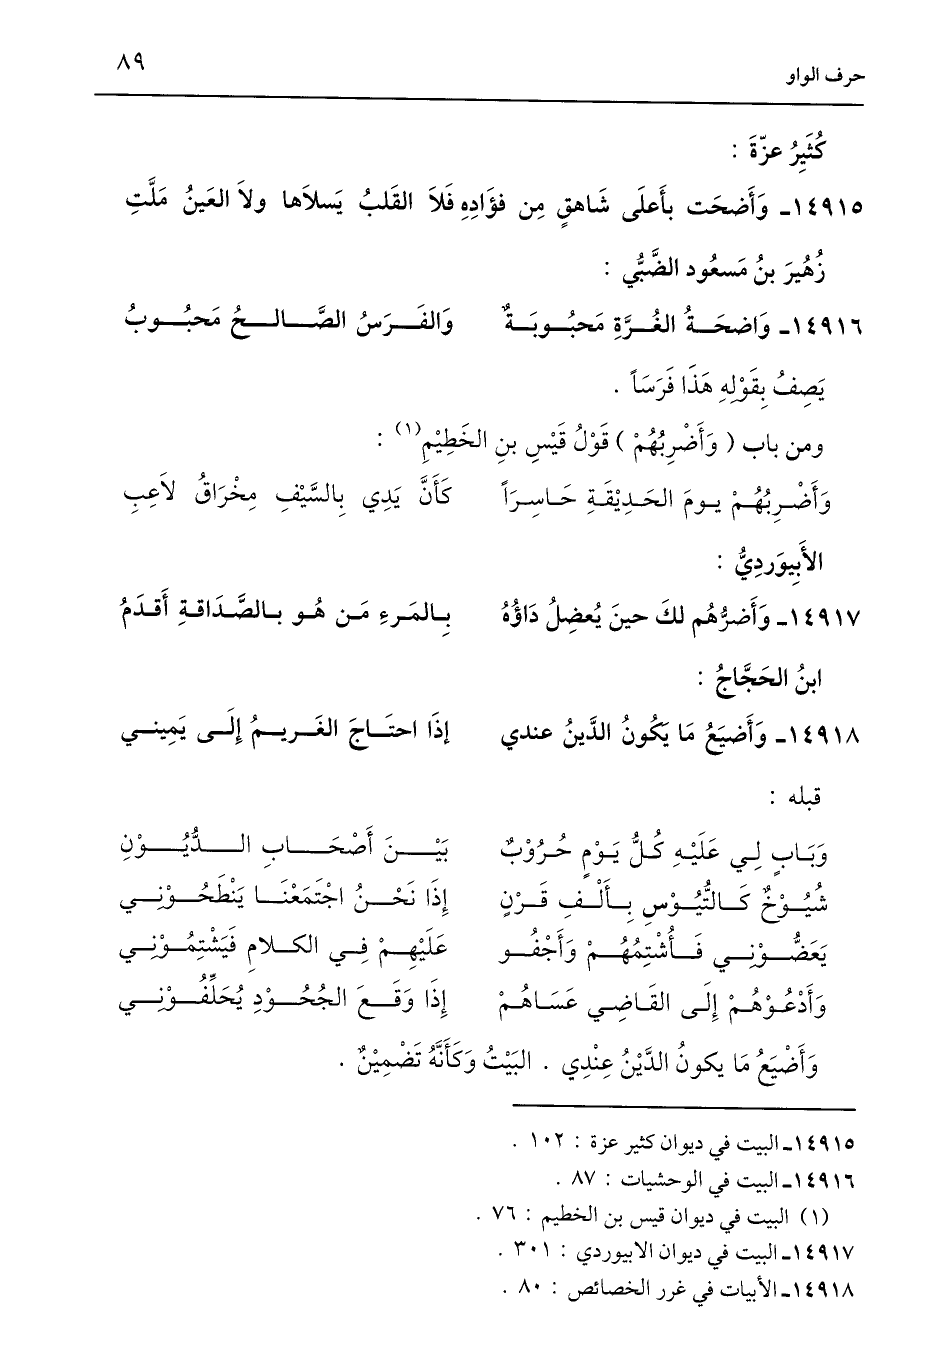 حرف الواو ٨٩
كُثَيِّرُ عزّةَ :
١٤٩١٥ـ وَأَضحَت بأَعلَى شَاهقٍ مِن فؤَادِهِ فَلاَ القَلبُ يَسلاَها ولاَ العَينُ مَلَّتِ
زُهَيرَ بنُ مَسعُود الضَّبِّي :
١٤٩١٦ـ وَاضحَـةُ الغُـرَّةِ مَحبُـوبَـةٌ والفَـرَسُ الصَّـالـحُ مَحبُـوبُ
يَصِفُ بِقَوْلِهِ هَذَا فَرَسَاً .
ومن باب ( وَأَضْرِبُهُمْ ) قَوْلُ قَيْسِ بنِ الخَطِيْمِ(١) :
وَأَضْرِبُهُمْ يومَ الحَدِيْقَةِ حَاسِرَاً كَأَنَّ يَدِي بِالسَّيْفِ مِخْرَاقُ لاَعِبِ
الأَبِيوَردِيُّ :
١٤٩١٧ـ وَأَضرُّهُم لكَ حينَ يُعضِلُ دَاؤُهُ بالمَرءِ مَن هُو بالصَّدَاقةِ أَقدَمُ
ابنُ الحَجَّاجُ :
١٤٩١٨ـ وَأَضيَعُ مَا يَكُونُ الدَّينُ عندي إذَا احتَاجَ الغَريمُ إلَى يَمِيني
قبله :
وَبَابٍ لِي عَلَيْهِ كُلُّ يَوْمٍ حُرُوْبٌ بَيْـنَ أَصْحَـابِ الـدُّيُـوْنِ
شُيُوْخٌ كَالتُّيُوْسِ بِأَلْفِ قَرْنٍ إِذَا نَحْنُ اجْتَمَعْنَا يَنْطَحُوْنِي
يَعَضُّوْنِي فَأَشْتِمُهُمْ وَأَجْفُو عَلَيْهِمْ فِي الكلامِ فَيَشْتِمُوْنِي
وَأَدْعُوْهُمْ إِلَى القَاضِي عَسَاهُمْ إِذَا وَقَعَ الجُحُوْدِ يُحَلِّفُوْنِي
وَأَضْيَعُ مَا يكونُ الدَّيْنُ عِنْدِي . البَيْتُ وَكَأَنَّهُ تَضْمِيْنٌ .
١٤٩١٥ـ البيت في ديوان كثير عزة : ١٠٢ .
١٤٩١٦ـ البيت في الوحشيات : ٨٧ .
(١) البيت في ديوان قيس بن الخطيم : ٧٦ .
١٤٩١٧ـ البيت في ديوان الابيوردي : ٣٠١ .
١٤٩١٨ـ الأبيات في غرر الخصائص : ٨٠ .